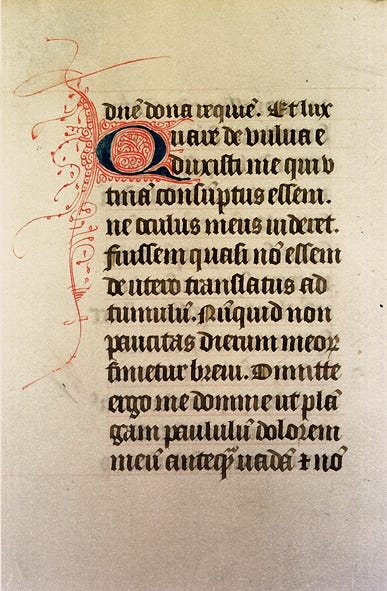 dnē dona requiē. Et lux
Quare de vulua e
duxisti me qui v
tinā consūptus essem.
ne oculus meus uideret.
fuissem quasi nō essem
de utero translatus ad
tumulū. Nūquid non
paucitas dierum meoꝝ
finietur breui. Dimitte
ergo me domine ut plā
gam paululū dolorem
meū anteqꝫ uadā ⁊ nō